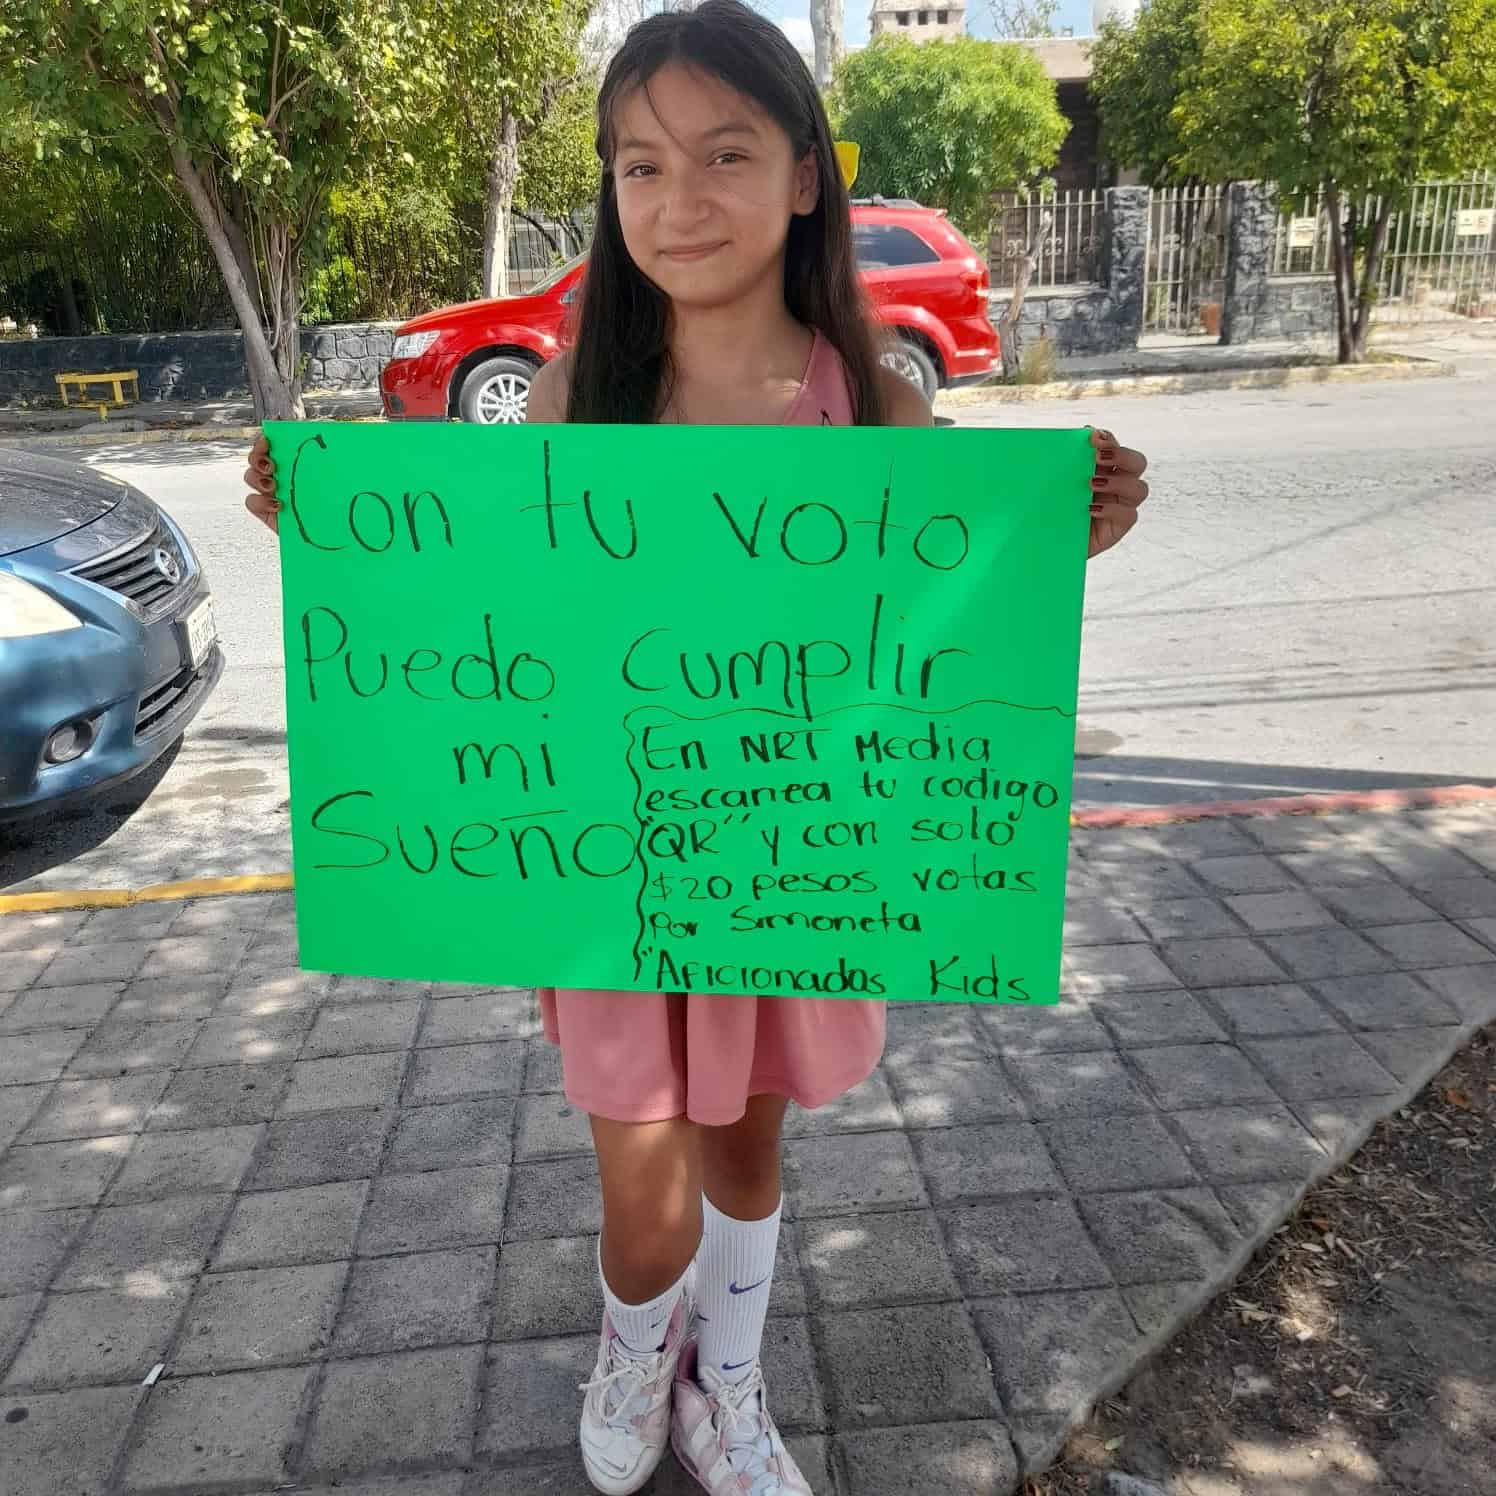 Con tu voto
Puedo cumplir
mi
Sueño
En NRT Media
escanea tu codigo
"QR" y con solo
$20 pesos votas
Por Simoneta
"Aficionados Kids